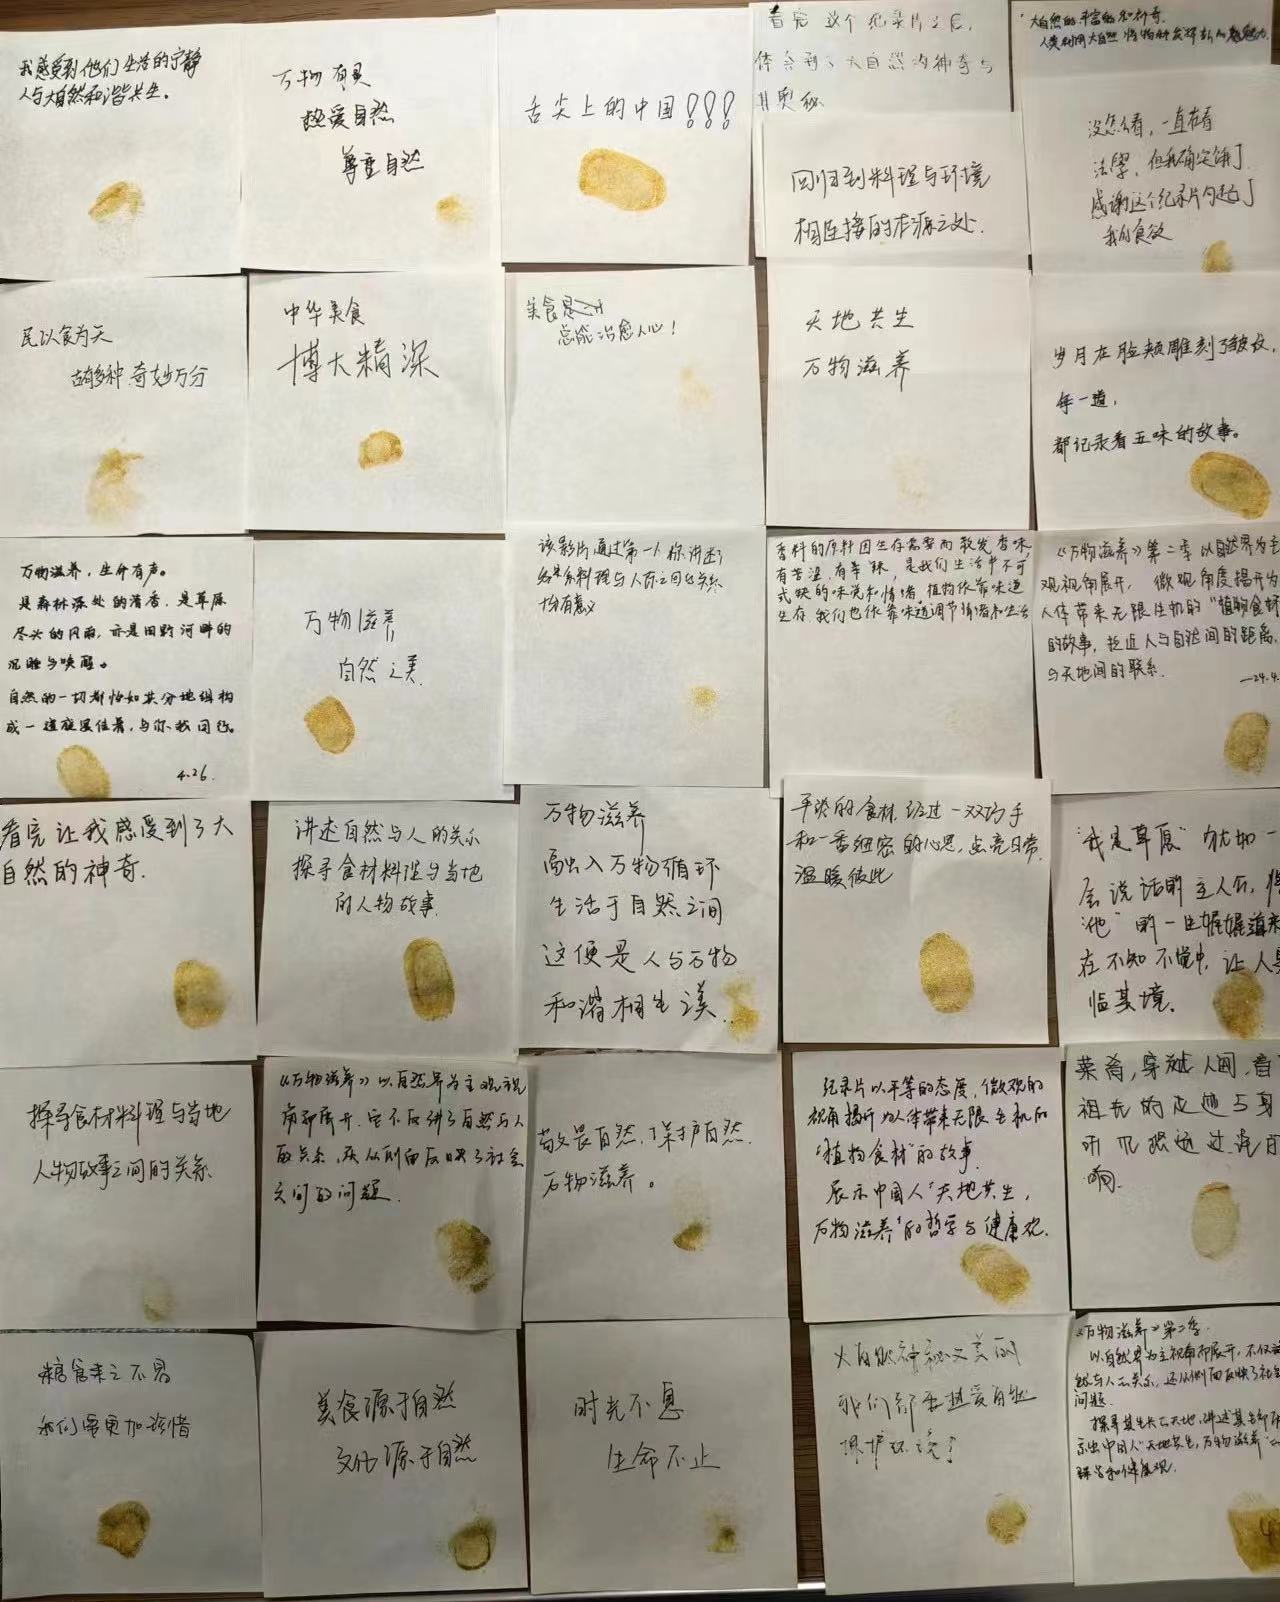 我感受到他们生活的宁静
人与大自然和谐共生。
万物有灵
热爱自然
尊重自然
舌尖上的中国!!!
看完这个纪录片之后,
体会到了大自然的神奇与
其奥秘
回归到料理与环境
相连接的本源之处.
大自然的丰富的和神奇.
没怎么看,一直在看
法学,但我确实饿了
感谢这个纪录片勾起了
我的食欲
民以食为天
奇妙万分
中华美食
博大精深
美食是
总能治愈人心!
天地共生
万物滋养
岁月在脸颊雕刻了皱纹,
每一道,
都记录着五味的故事。
万物滋养,生命有声。
是森林深处的清香,是草原
尽头的风雨,亦是田野河畔的
沉睡与唤醒。
自然的一切都恰如其分地组构
成一道旋涡佳肴,与你我同行。
4.26.
万物滋养
自然之美.
该影片通过第一人称讲述了
料理与人际之间的关系
十分有意义
香料的原料因生存需要而散发香味,
有苦涩,有辛辣,是我们生活中不可
或缺的味觉和情绪,植物依靠味道
生存,我们也依靠味道调节情绪和生活
《万物滋养》第二季以自然界为主
观视角展开,微观角度揭开为
人体带来无限生机的“植物食材
的故事,拉近人与自然间的距离,
与天地间的联系.
看完让我感受到了大
自然的神奇.
讲述自然与人的关系
探寻食材料理与当地
的人物故事
万物滋养
而出入万物循环
生活于自然之间
这便是人与万物
和谐相生之美..
平淡的食材经过一双巧手
和一番细密的心思,点亮日常,
温暖彼此
“我是草原”犹如一
会说话的主人公,将
“他”的一生娓娓道来
在不知不觉中,让人身
临其境.
探寻食材料理与当地
人物故事之间的关系
《万物滋养》以自然界为主观视
角部展开.它不仅讲了自然与人
的关系,更从侧面反映了社会
之间的问题.
敬畏自然,保护自然.
万物滋养。
纪录片以平等的态度,微观的
视角揭开为人体带来无限生机的
“植物食材”的故事.
展示中国人“天地共生,
万物滋养”的哲学与健康观.
菜肴,穿越人间,看
粮食来之不易
我们需更加珍惜
美食源于自然
文化源于自然
时光不息
生命不止
大自然神秘又美丽
我们都要热爱自然
保护环境!
《万物滋养》第二季.
以自然界为主视角而展开,不仅讲
然与人之关系,还从侧面反映了社会
问题.
示出中国人“天地共生,万物滋养”